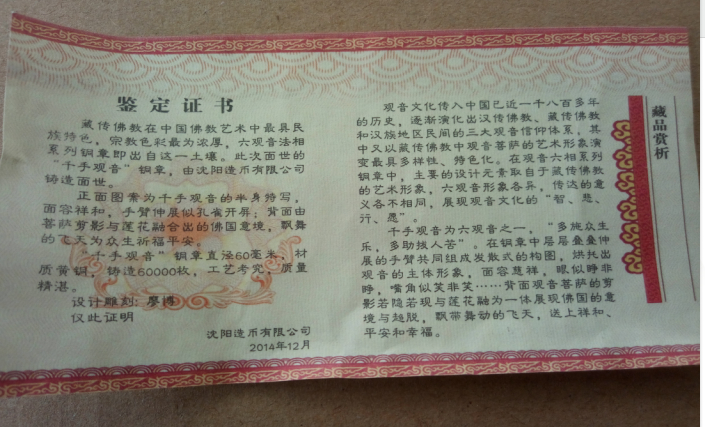 鉴定证书
藏传佛教在中国佛教艺术中最具民
族特色，宗教色彩最为浓厚，六观音法相
系列铜章即出自这一土壤。此次面世的
“千手观音”铜章，由沈阳造币有限公司
铸造面世。
正面图案为千手观音的半身特写，
面容祥和，手臂伸展似孔雀开屏；背面由
菩萨剪影与莲花融合出的佛国意境，飘舞
的飞天为众生祈福平安。
千手观音”铜章直径60毫米，材
质黄铜，铸造60000枚，工艺考究，质量
精湛。
设计雕刻：廖博
仅此证明
沈阳造币有限公司
2014年12月
藏品赏析
观音文化传入中国已近一千八百多年
的历史，逐渐演化出汉传佛教、藏传佛教
和汉族地区民间的三大观音信仰体系，其
中又以藏传佛教中观音菩萨的艺术形象演
变最具多样性、特色化。在观音六相系列
铜章中，主要的设计元素取自于藏传佛教
的艺术形象，六观音形象各异，传达的意
义各不相同，展现观音文化的“智、悲、
行、愿”。
千手观音为六观音之一，“多施众生
乐，多助拔人苦”。在铜章中层层叠叠伸
展的手臂共同组成发散式的构图，烘托出
观音的主体形象，面容慈祥，眼似睁非
睁，嘴角似笑非笑……背面观音菩萨的剪
影若隐若现与莲花融为一体展现佛国的意
境与超脱，飘带舞动的飞天，送上祥和、
平安和幸福。